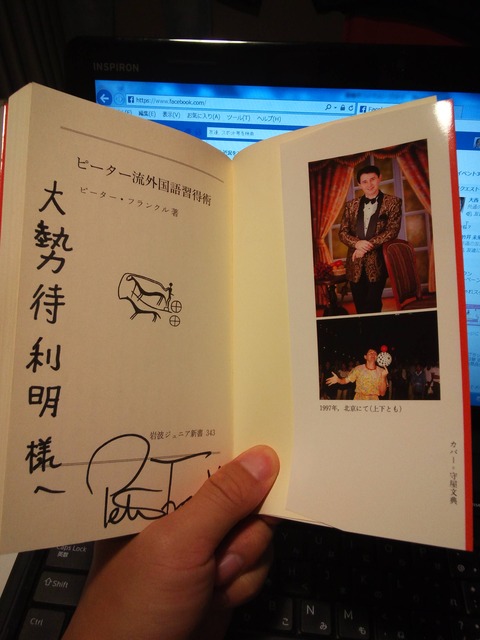 INSPIRON
https://www.facebook.com/
編集(E) 表示(V) お気に入り(A) ツール(T) ヘルプ(H)
ピーター流外国語習得術
ピーター・フランクル 著
大勢待利明様へ
岩波ジュニア新書 343
1997年，北京にて(上下とも)
カバー・守屋文典
Caps Lock
英数
Shift
Ctrl
N
M